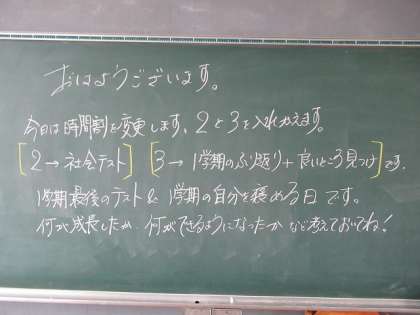 おはようございます。
今日は時間割を変更します。2と3を入れかえます。
[2→社会テスト] [3→1学期のふり返り+良いところ見つけ]です。
1学期最後のテスト& 1学期の自分を褒める日です。
何が成長したか、何ができるようになったかなど考えておいてね!